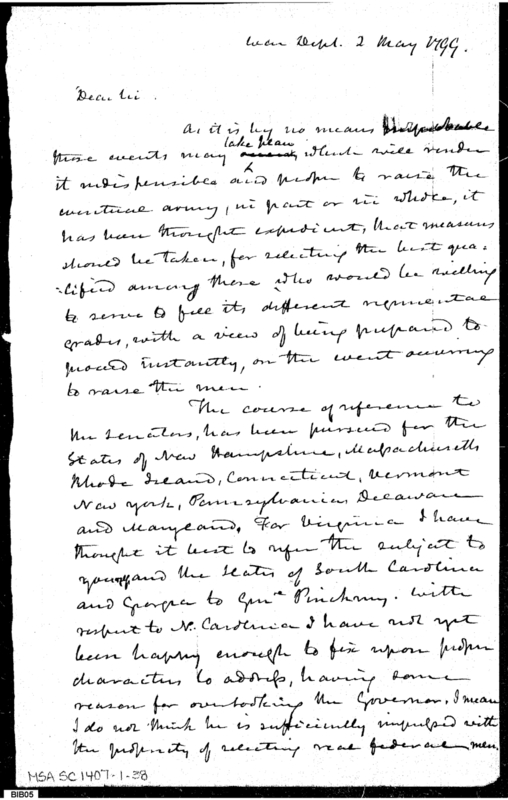 War Dept. 2 May 1799.
Dear Sir.
As it is by no means improbable
take place
those events may which will render
it indispensible and proper to raise the
eventual army, in part or in whole, it
has been thought expedient, that measures
should be taken, for selecting the best qua-
-lified among those who would be willing
to serve to fill its different regimental
grades, with a view of being prepared to
proceed instantly, on the event occurring
to raise the men.
The course of reference to
the Senators, has been pursued for the
States of New Hampshire, Massachusetts
Rhode Island, Connecticut, Vermont
New york, Pennsylvania, Delaware
and Maryland. For Virginia I have
thought it best to refer the subject to
you, and the States of South Carolina
and Georgia to Genl. Pinckney. With
respect to N. Carolina I have not yet
been happy enough to fix upon proper
characters to address, having some
reason for overlooking the Governor. I mean
I do not think he is sufficiently impressed with
the propriety of selecting real federal men.
MSA SC 1407-1-38
BIB05